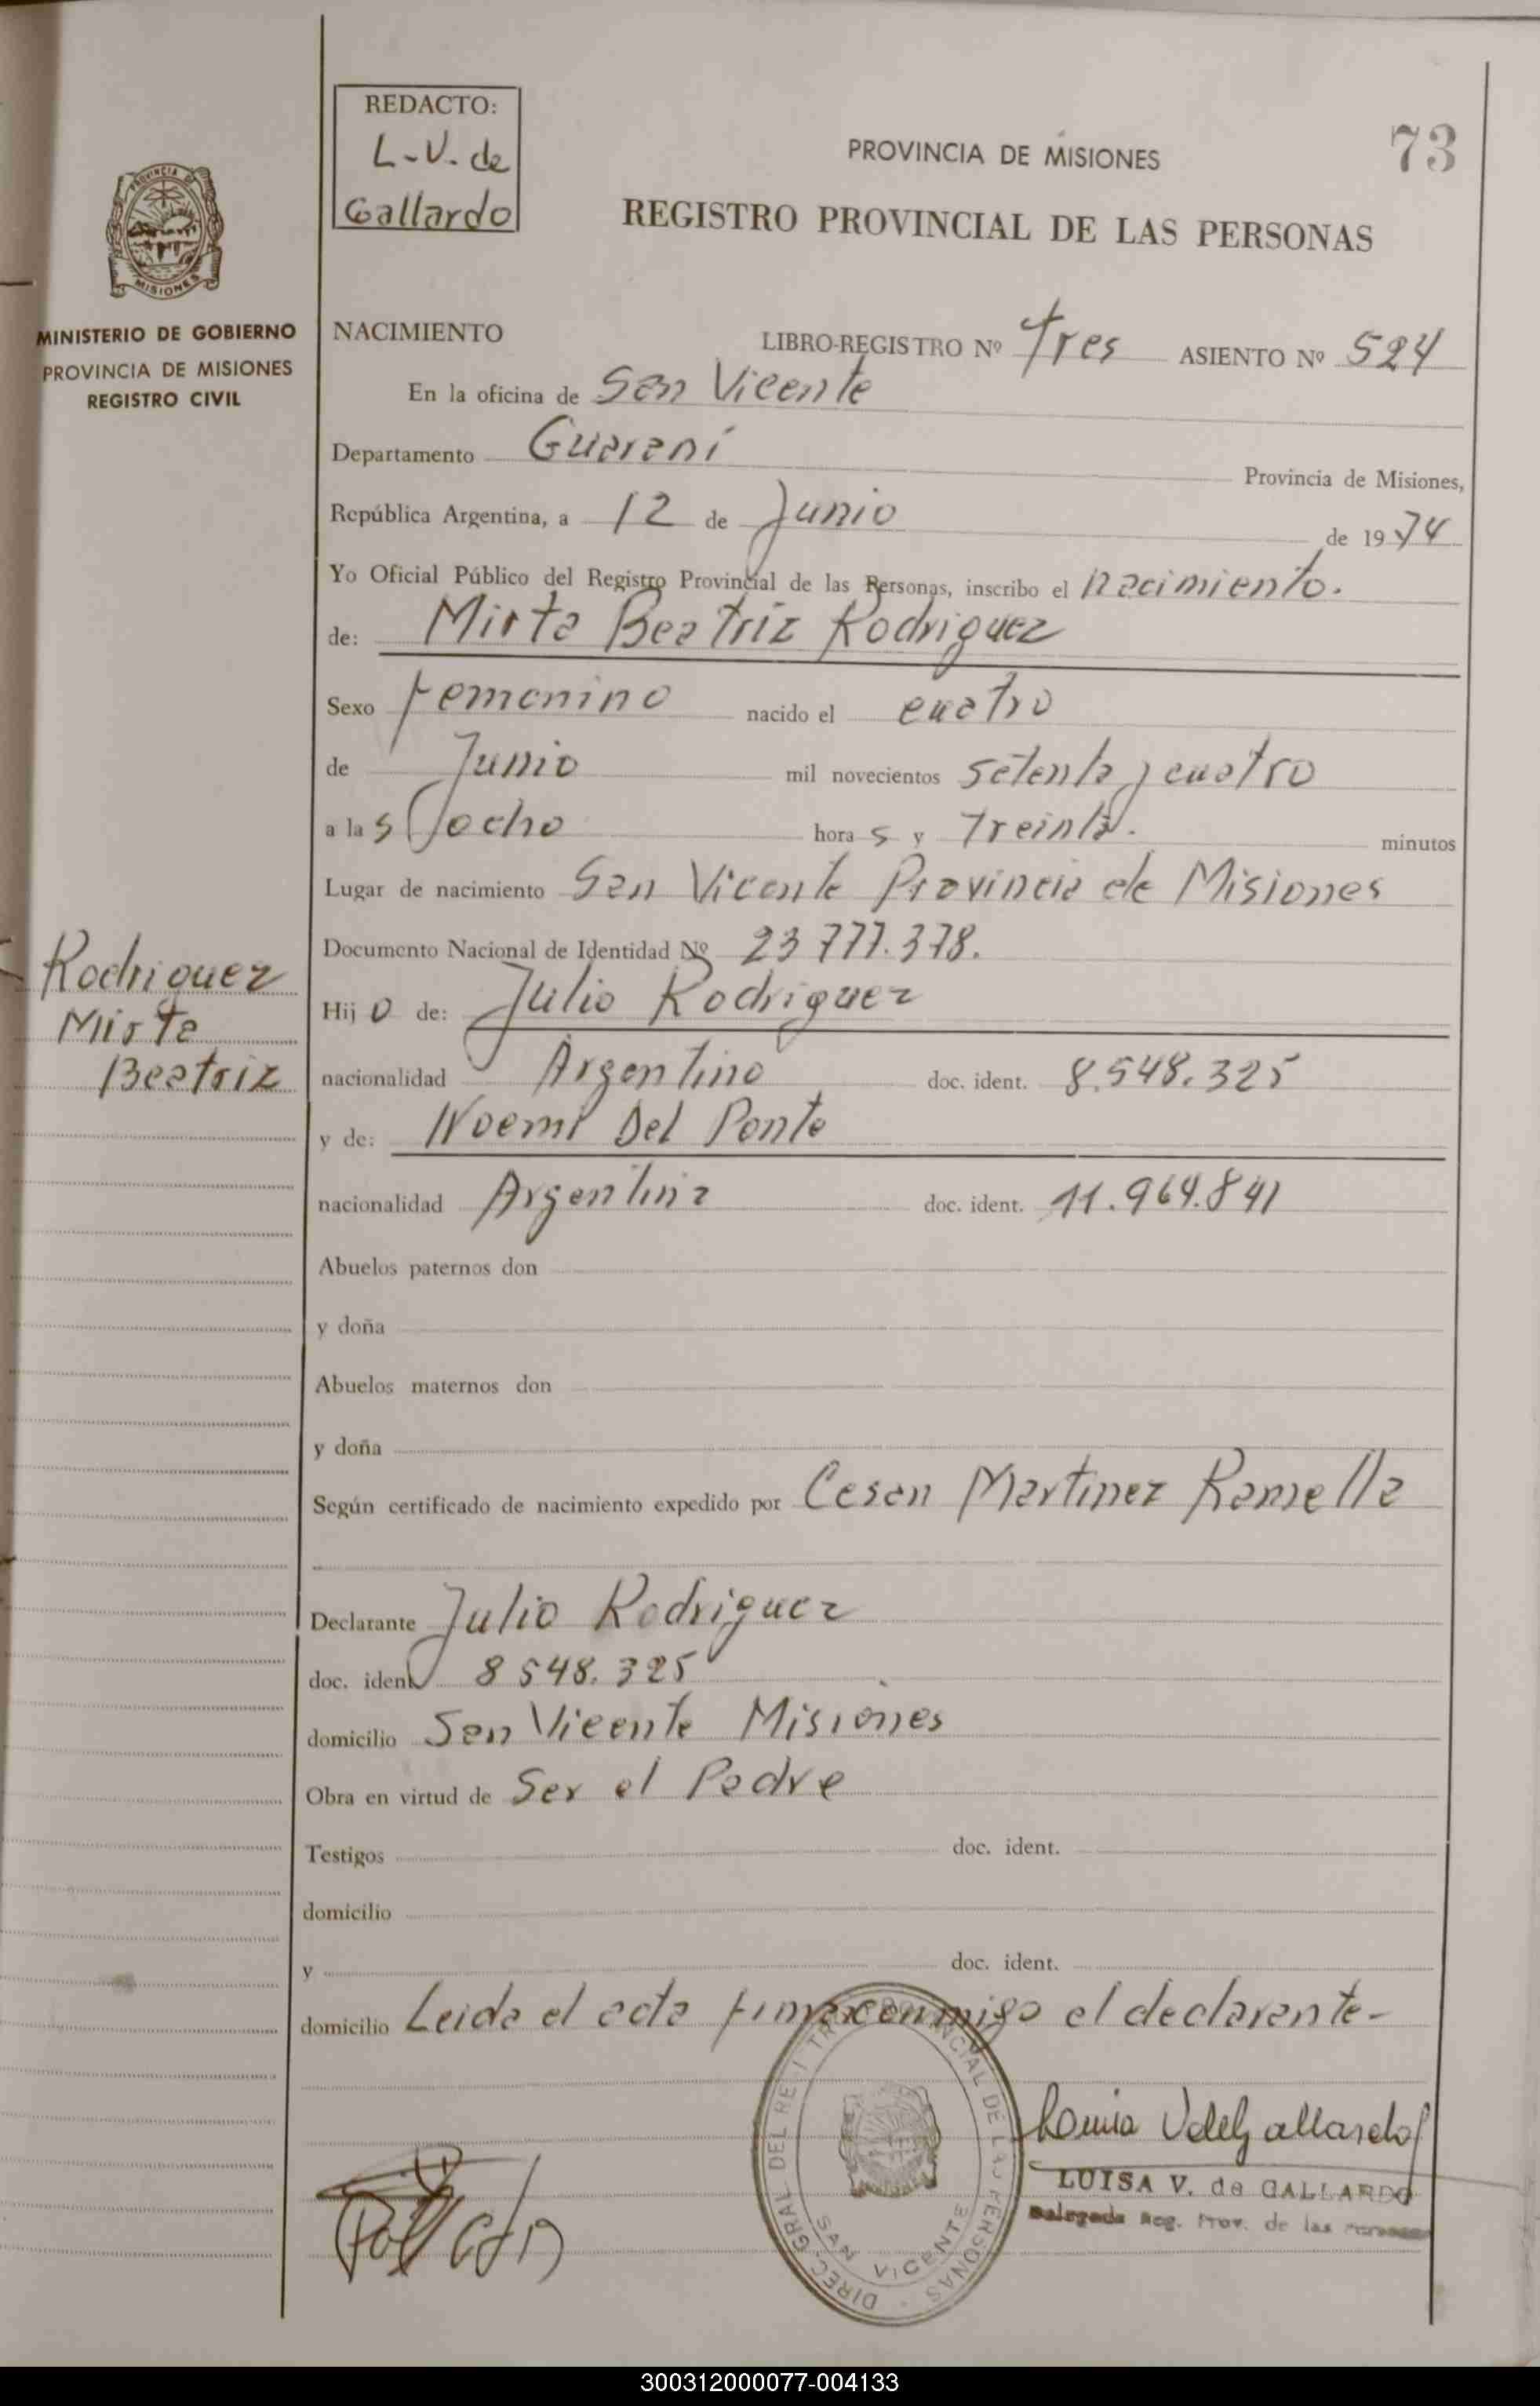 REDACTO:
L-V. de
Gallardo
PROVINCIA DE MISIONES
73
REGISTRO PROVINCIAL DE LAS PERSONAS
PROVINCIA DE
MISIONES
MINISTERIO DE GOBIERNO
PROVINCIA DE MISIONES
REGISTRO CIVIL
NACIMIENTO LIBRO-REGISTRO Nº Tres ASIENTO Nº 524
En la oficina de San Vicente
Departamento Guarani Provincia de Misiones,
República Argentina, a 12 de Junio de 1974
Yo Oficial Público del Registro Provincial de las Personas, inscribo el nacimiento.
de: Mirta Beatriz Rodriguez
Sexo Femenino nacido el cuatro
de Junio mil novecientos setenta y cuatro
a las ocho horas y Treinta. minutos
Lugar de nacimiento San Vicente Provincia de Misiones
Documento Nacional de Identidad Nº 23 777.378.
Rodriguez
Mirta
Beatriz
Hijo de: Julio Rodriguez
nacionalidad Argentino doc. ident. 8.548.325
y de: Noemi Del Ponte
nacionalidad Argentina doc. ident. 11.964.841
Abuelos paternos don
y doña
Abuelos maternos don
y doña
Según certificado de nacimiento expedido por Cesar Martinez Ramella
Declarante Julio Rodriguez
doc. ident 8 548.325
domicilio San Vicente Misiones
Obra en virtud de Ser el Padre
Testigos doc. ident.
domicilio
y doc. ident.
domicilio Leida el acta firma conmigo el declarante-
DIREC. GRAL DEL REGISTRO PROVINCIAL DE LAS PERSONAS
SAN VICENTE
Louisa V de Gallardo
LUISA V. de GALLARDO
Delegada Reg. Prov. de las Personas
300312000077-004133